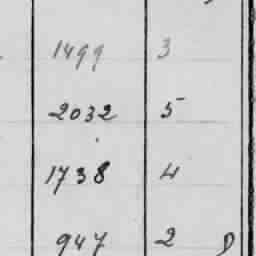 1499 3
2032 5
1738 4
947 2 D